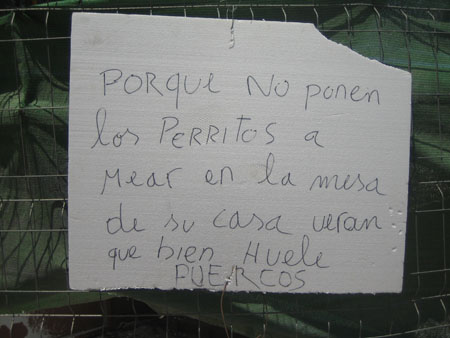 PORQUE NO ponen
los PERRITOS a
Mear en la mesa
de su casa veran
que bien Huele
PUERCOS